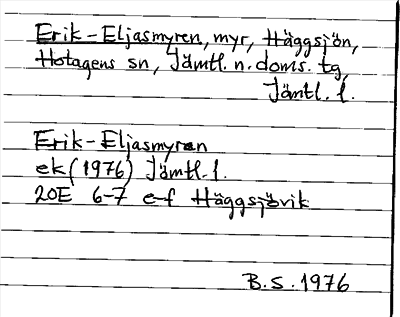 Erik-Eljasmyren, myr, Häggsjön,
Hotagens sn, Jämtl. n. doms. tg,
Jämtl. l.
Erik-Eljasmyren
ek (1976) Jämtl. l.
20E 6-7 e-f Häggsjövik
B.S. 1976